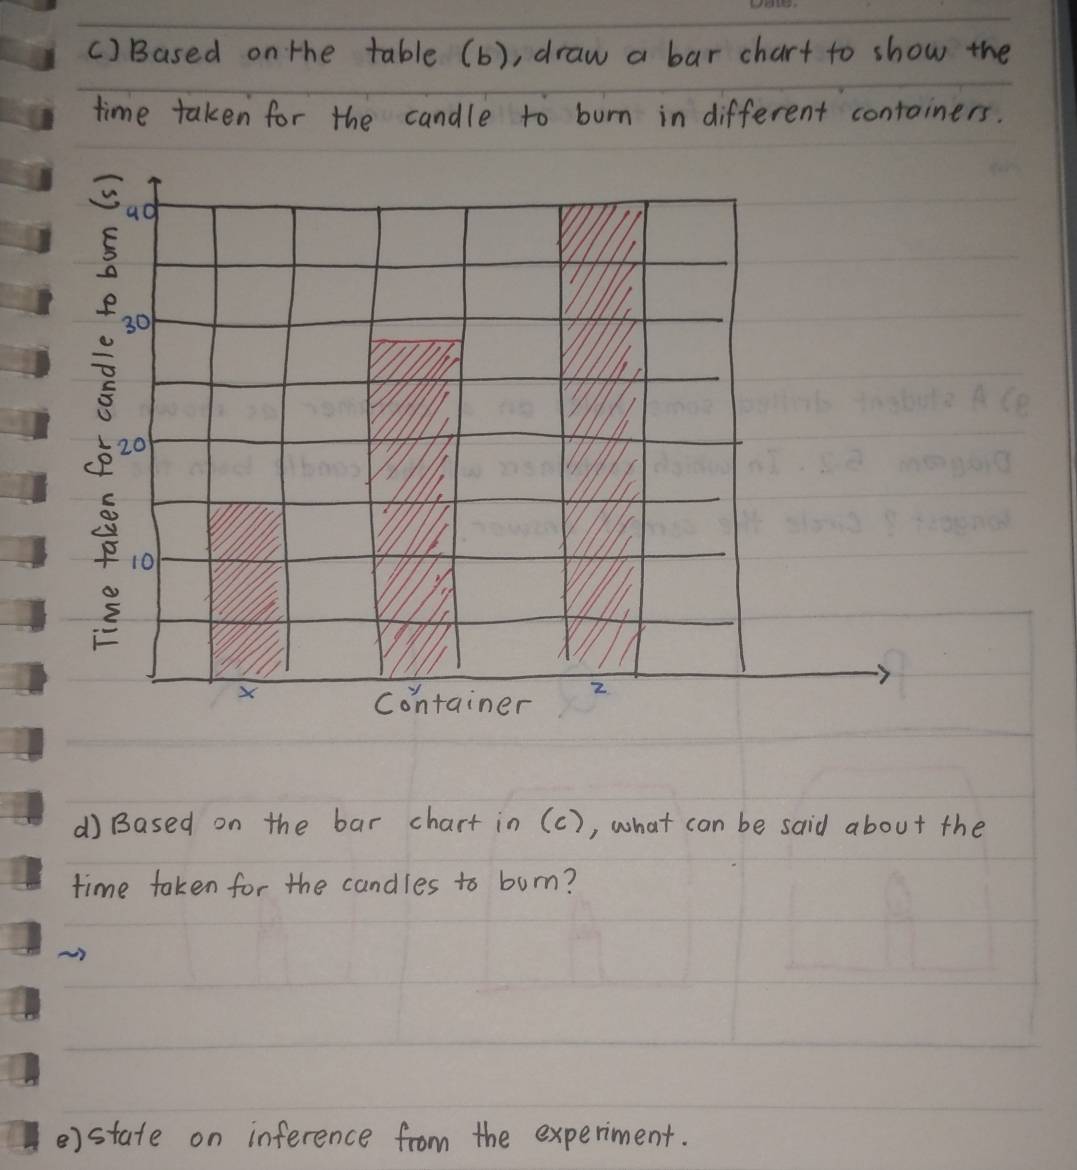 c) Based on the table (b), draw a bar chart to show the
time taken for the candle to burn in different containers.
Time taken for candle to burn (s)
40
30
20
10
x
y
z
Container
d) Based on the bar chart in (c), what can be said about the
time taken for the candles to burn?
e) state on inference from the experiment.